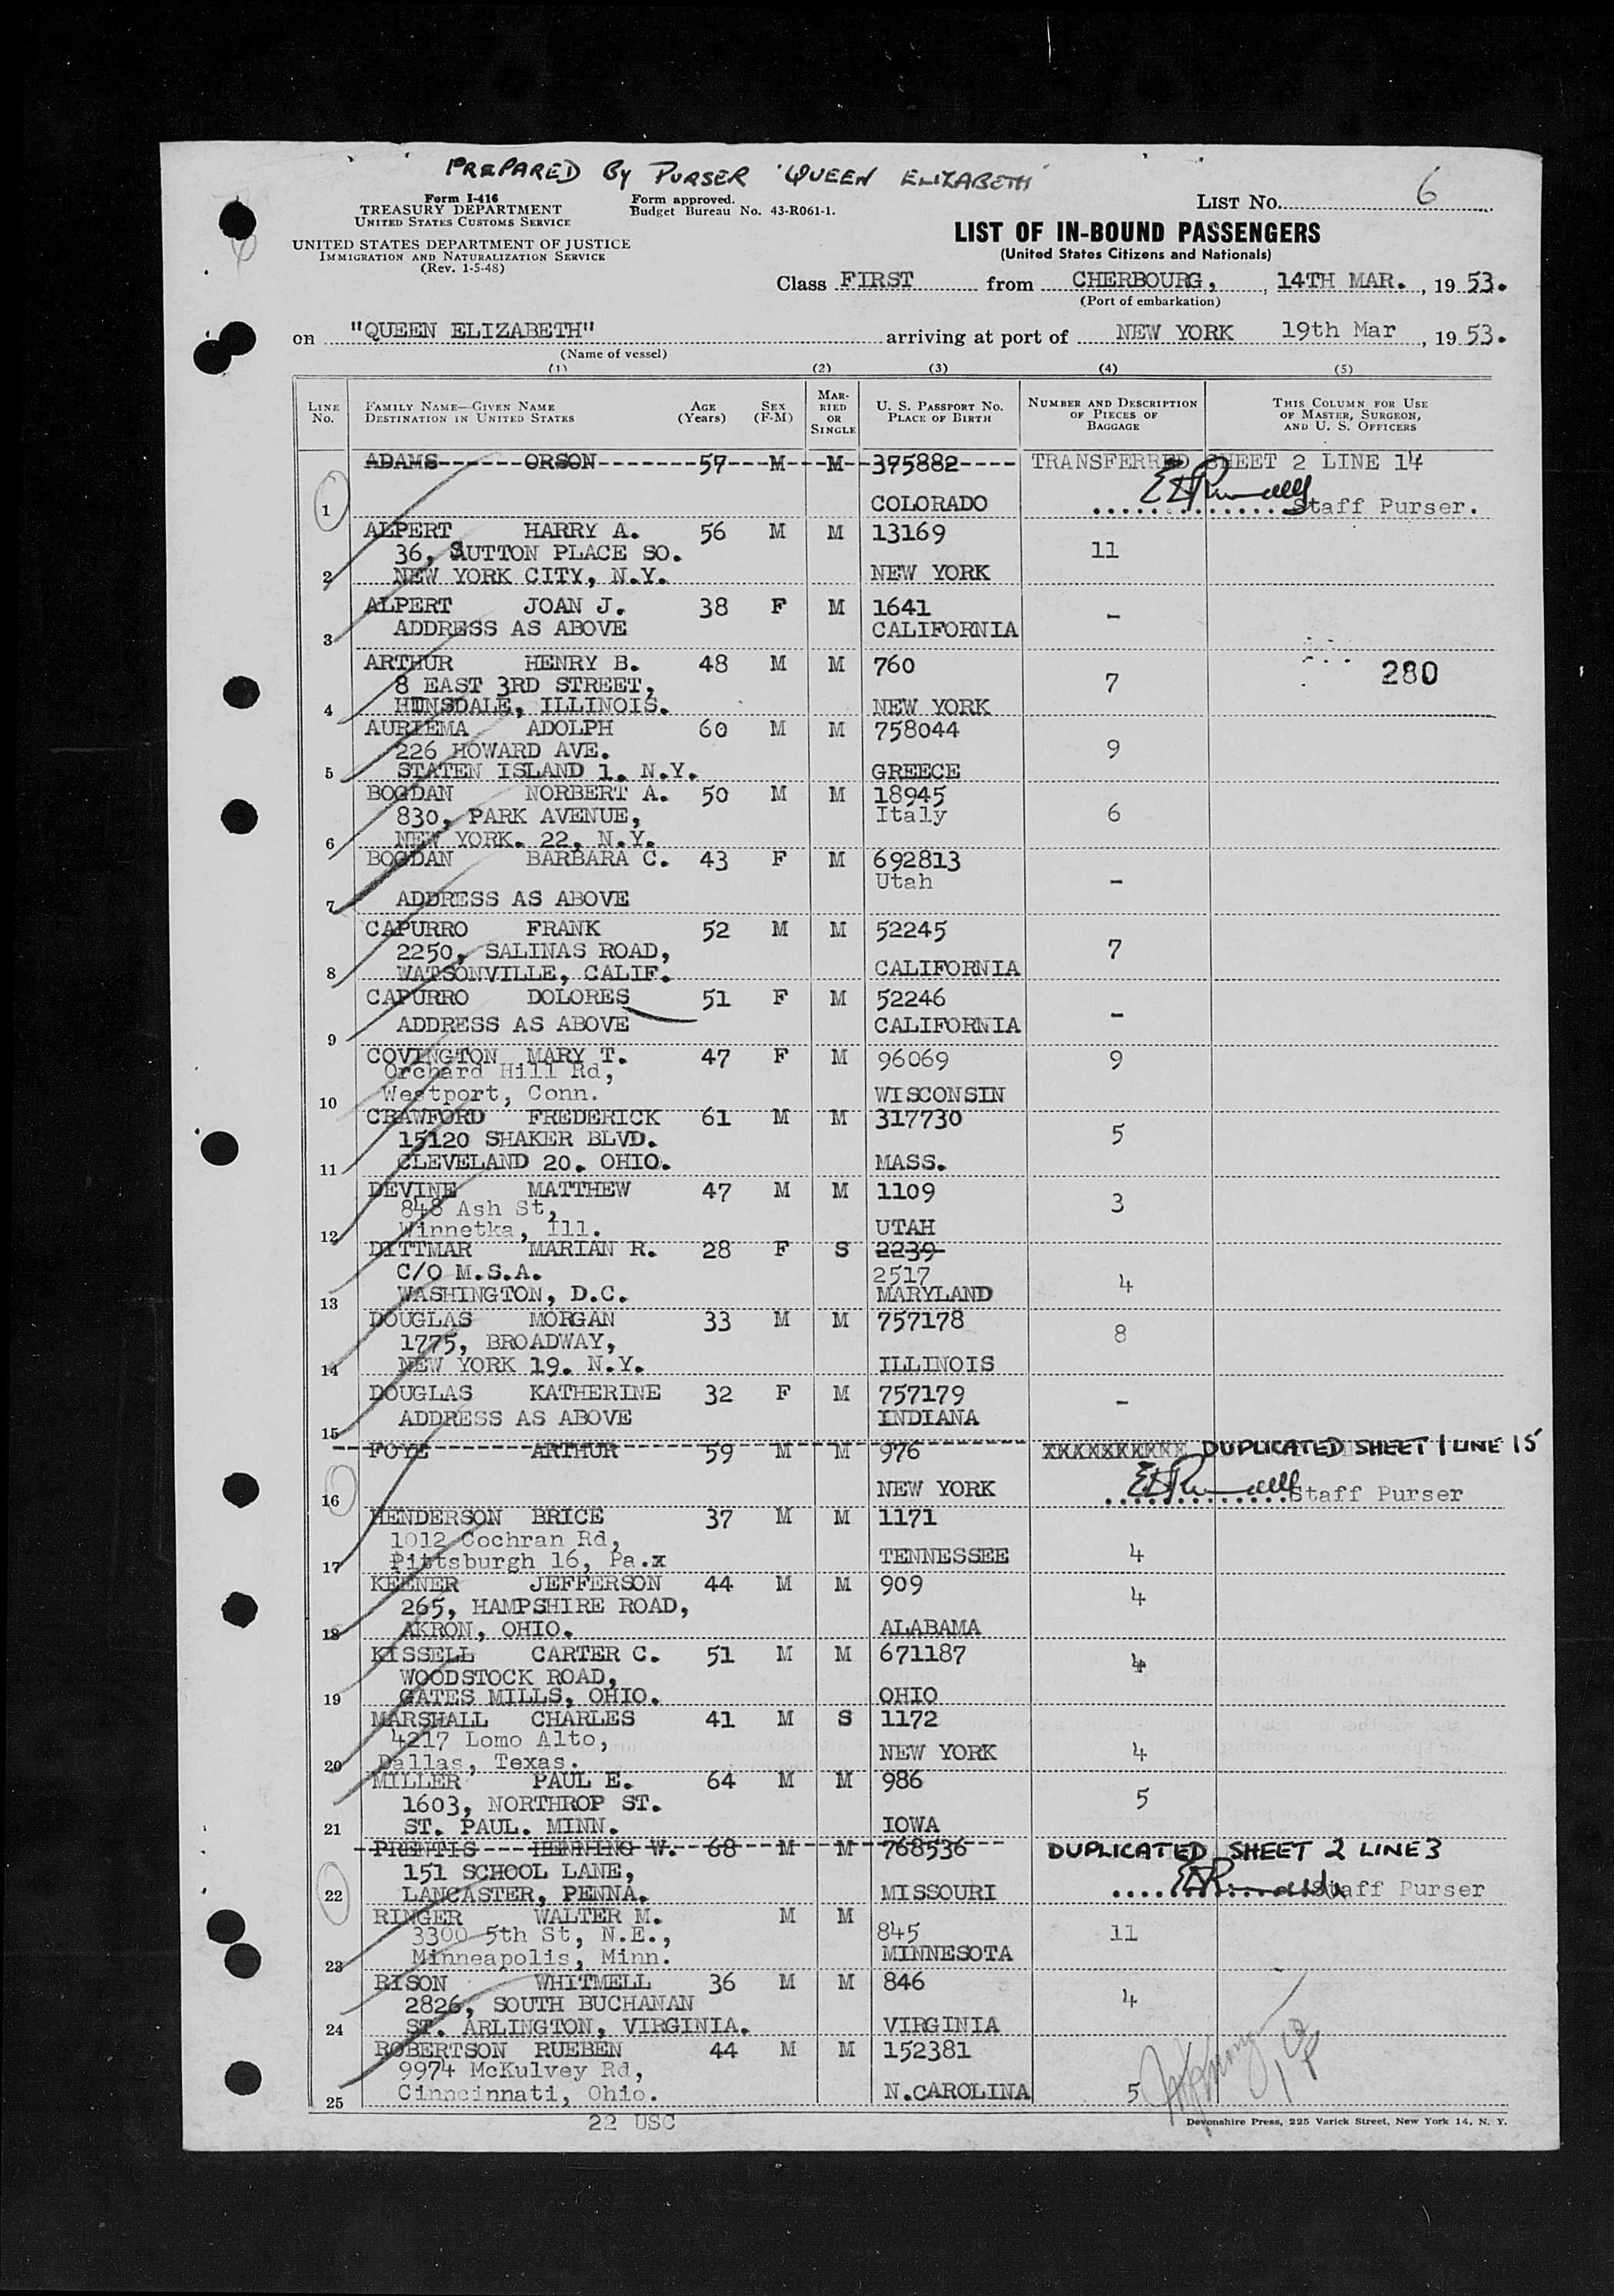 PREPARED By PURSER 'QUEEN ELIZABETH'
Form I-416
TREASURY DEPARTMENT
UNITED STATES CUSTOMS SERVICE
Form approved.
Budget Bureau No. 43-R061-1.
LIST NO. 6
UNITED STATES DEPARTMENT OF JUSTICE
IMMIGRATION AND NATURALIZATION SERVICE
(Rev. 1-5-48)
LIST OF IN-BOUND PASSENGERS
(United States Citizens and Nationals)
Class FIRST from CHERBOURG, , 14TH MAR. , 19 53.
(Port of embarkation)
on "QUEEN ELIZABETH" arriving at port of NEW YORK 19th Mar , 19 53.
(Name of vessel)
(1) (2) (3) (4) (5)
LINE No. FAMILY NAME—GIVEN NAME DESTINATION IN UNITED STATES AGE (Years) SEX (F-M) MARRIED OR SINGLE U. S. PASSPORT NO. PLACE OF BIRTH NUMBER AND DESCRIPTION OF PIECES OF BAGGAGE THIS COLUMN FOR USE OF MASTER, SURGEON, AND U. S. OFFICERS
ADAMS------ORSON-------57---M---M--375882---- TRANSFERRED SHEET 2 LINE 14
1 COLORADO Staff Purser.
ALPERT HARRY A. 56 M M 13169
36, SUTTON PLACE SO. 11
2 NEW YORK CITY, N.Y. NEW YORK
ALPERT JOAN J. 38 F M 1641
3 ADDRESS AS ABOVE CALIFORNIA -
ARTHUR HENRY B. 48 M M 760 280
8 EAST 3RD STREET, 7
4 HINSDALE, ILLINOIS. NEW YORK
AURIEMA ADOLPH 60 M M 758044
226 HOWARD AVE. 9
5 STATEN ISLAND 1. N.Y. GREECE
BOGDAN NORBERT A. 50 M M 18945
830, PARK AVENUE, Italy 6
6 NEW YORK. 22, N.Y.
BOGDAN BARBARA C. 43 F M 692813
Utah -
7 ADDRESS AS ABOVE
CAPURRO FRANK 52 M M 52245
2250, SALINAS ROAD, 7
8 WATSONVILLE, CALIF. CALIFORNIA
CAPURRO DOLORES 51 F M 52246
9 ADDRESS AS ABOVE CALIFORNIA -
COVINGTON MARY T. 47 F M 96069 9
Orchard Hill Rd,
10 Westport, Conn. WISCONSIN
CRAWFORD FREDERICK 61 M M 317730
15120 SHAKER BLVD. 5
11 CLEVELAND 20. OHIO. MASS.
DEVINE MATTHEW 47 M M 1109
848 Ash St, 3
12 Winnetka, Ill. UTAH
DITTMAR MARIAN R. 28 F S 2239
C/O M.S.A. 2517 4
13 WASHINGTON, D.C. MARYLAND
DOUGLAS MORGAN 33 M M 757178
1775, BROADWAY, 8
14 NEW YORK 19. N.Y. ILLINOIS
DOUGLAS KATHERINE 32 F M 757179
15 ADDRESS AS ABOVE INDIANA -
FOYE ARTHUR 59 M M 976 XXXXXXXXXX DUPLICATED SHEET 1 LINE 15
16 NEW YORK Staff Purser
HENDERSON BRICE 37 M M 1171
1012 Cochran Rd,
17 Pittsburgh 16, Pa.x TENNESSEE 4
KEENER JEFFERSON 44 M M 909
265, HAMPSHIRE ROAD, 4
18 AKRON, OHIO. ALABAMA
KISSELL CARTER C. 51 M M 671187
WOODSTOCK ROAD, 4
19 GATES MILLS, OHIO. OHIO
MARSHALL CHARLES 41 M S 1172
4217 Lomo Alto,
20 Dallas, Texas. NEW YORK 4
MILLER PAUL E. 64 M M 986
1603, NORTHROP ST. 5
21 ST. PAUL. MINN. IOWA
PRENTIS HENNING W. 68 M M 768536 DUPLICATED SHEET 2 LINE 3
151 SCHOOL LANE,
22 LANCASTER, PENNA. MISSOURI Staff Purser
RINGER WALTER M. M M
3300 5th St, N.E., 845 11
23 Minneapolis, Minn. MINNESOTA
RISON WHITMELL 36 M M 846
2826, SOUTH BUCHANAN 4
24 ST. ARLINGTON, VIRGINIA. VIRGINIA
ROBERTSON RUEBEN 44 M M 152381
9974 McKulvey Rd,
25 Cinncinnati, Ohio. N.CAROLINA 5
22 USC
Devonshire Press, 225 Varick Street, New York 14, N. Y.